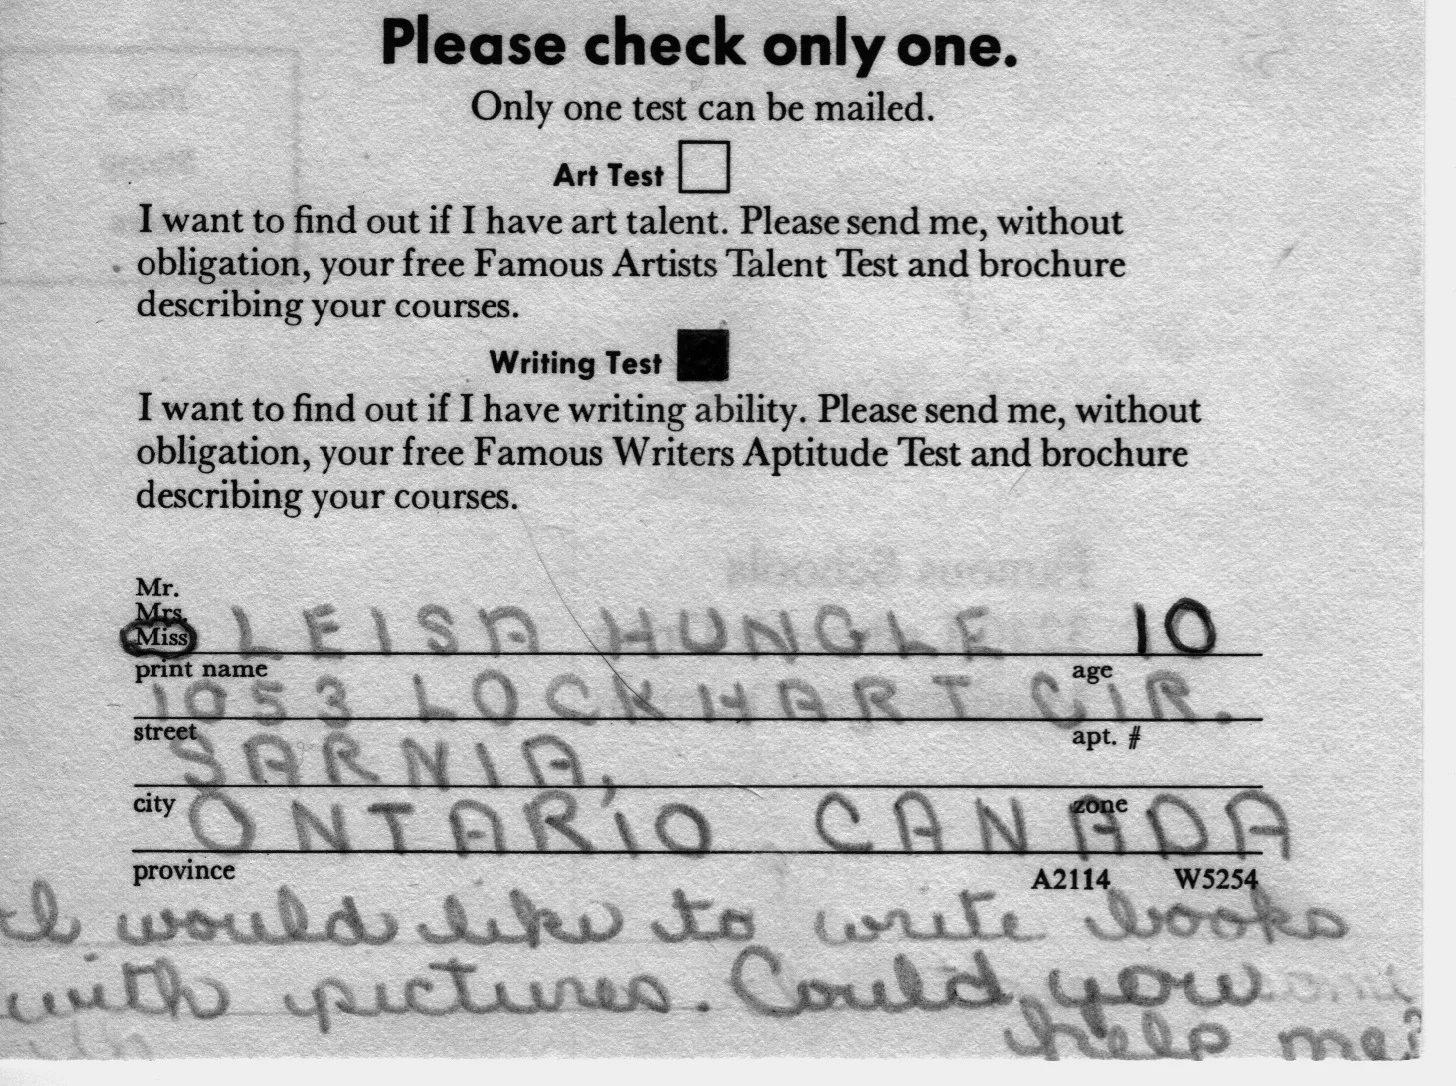 Please check only one.
Only one test can be mailed.
Art Test
I want to find out if I have art talent. Please send me, without
obligation, your free Famous Artists Talent Test and brochure
describing your courses.
Writing Test
I want to find out if I have writing ability. Please send me, without
obligation, your free Famous Writers Aptitude Test and brochure
describing your courses.
Mr.
Mrs.
Miss LEISA HUNGLE 10
print name age
1053 LOCKHART CIR.
street apt. #
SARNIA,
city zone
ONTARIO CANADA
province A2114 W5254
I would like to write books
with pictures. Could you
help me?